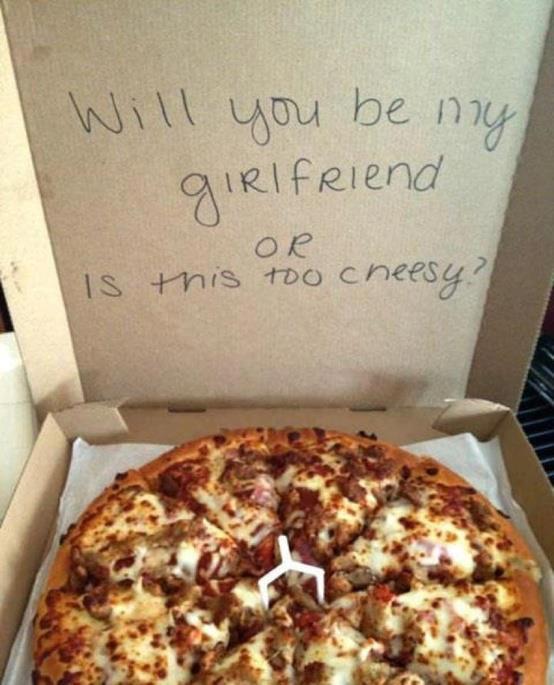 Will you be my
girlfriend
OR
Is this too cheesy?